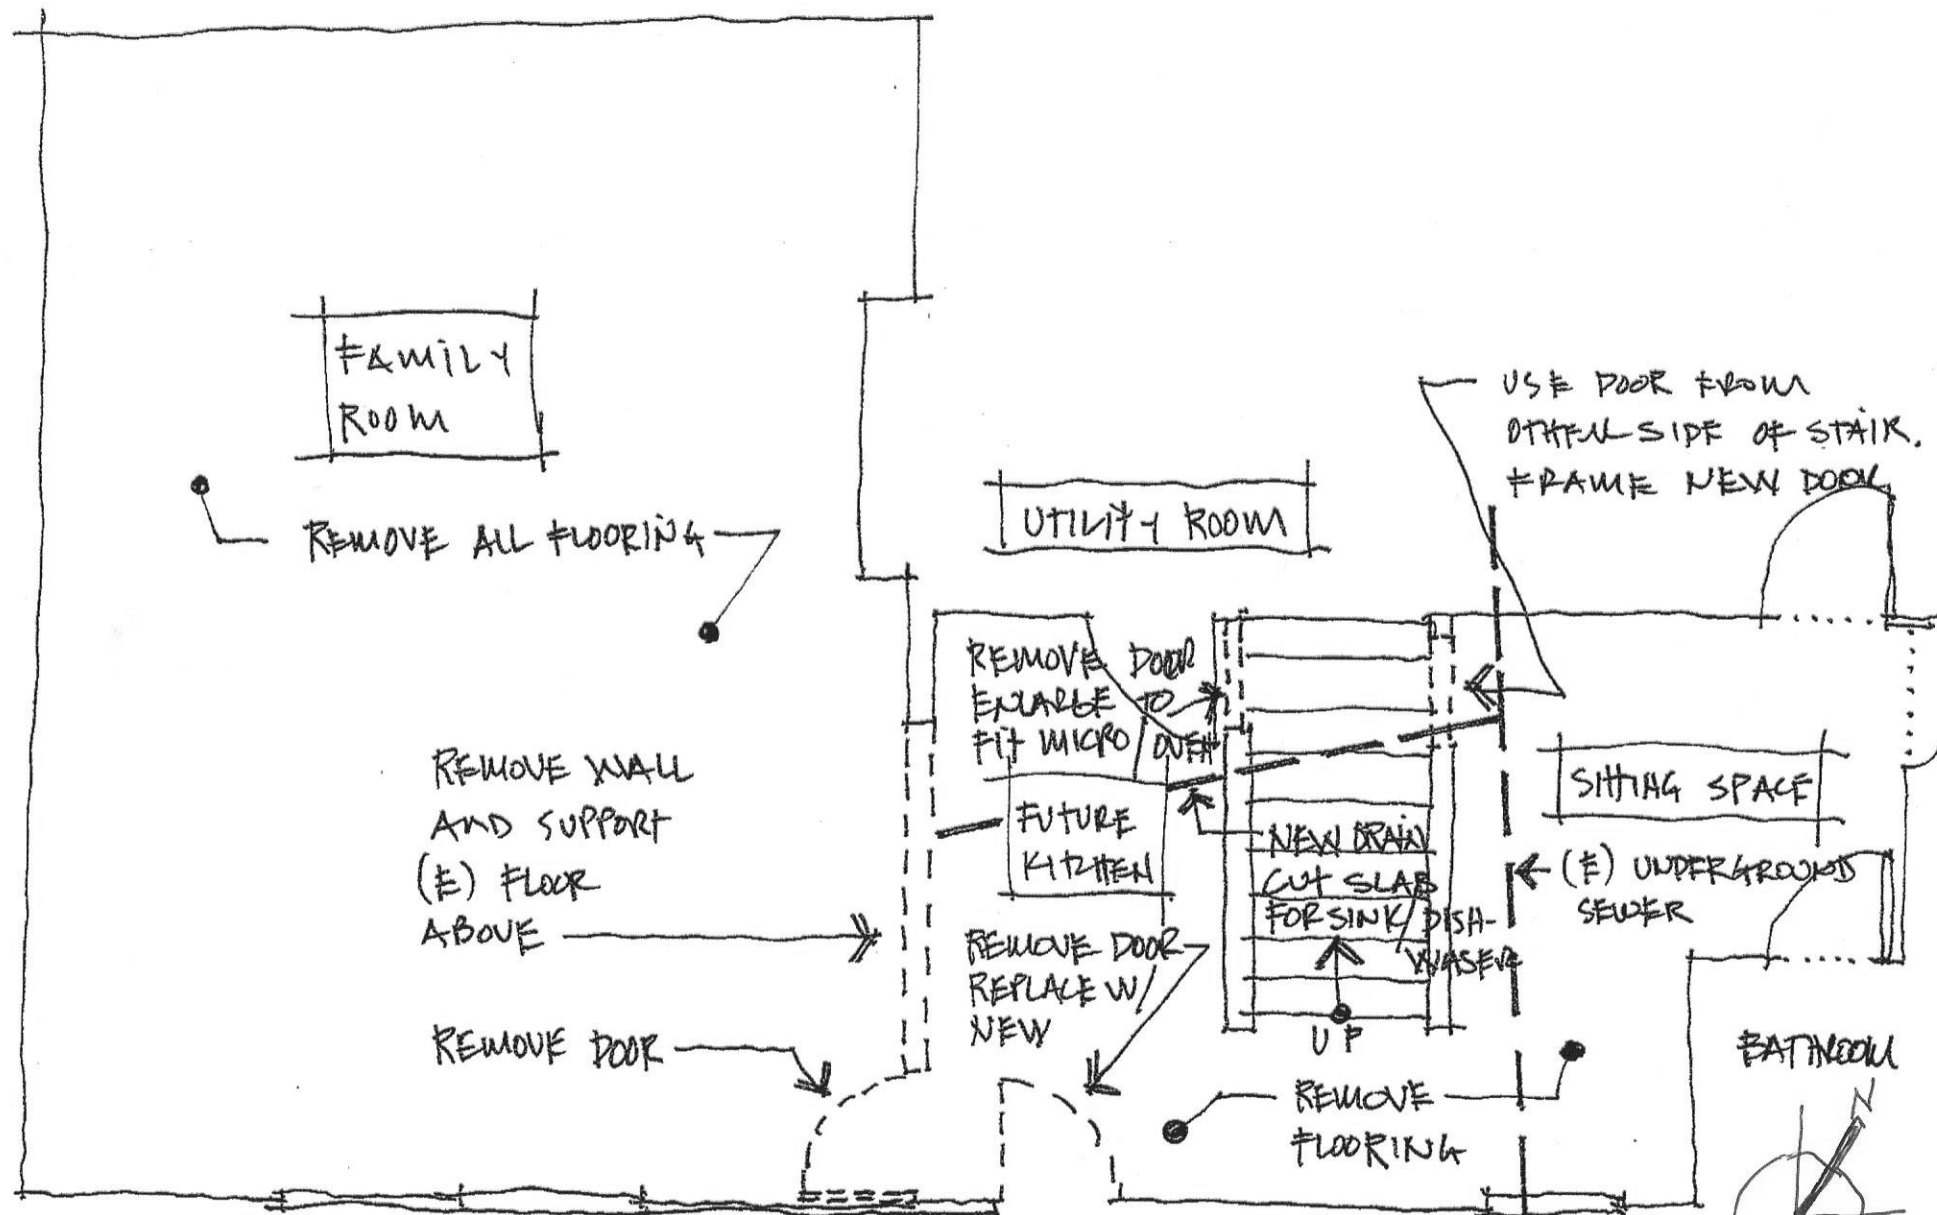 FAMILY
ROOM
REMOVE ALL FLOORING
UTILITY ROOM
USE DOOR FROM
OTHER SIDE OF STAIR.
FRAME NEW DOOR
REMOVE DOOR
ENLARGE TO
FIT MICRO/OVEN
REMOVE WALL
AND SUPPORT
(E) FLOOR
ABOVE
FUTURE
KITCHEN
NEW DRAIN
CUT SLAB
FOR SINK/DISH-
WASER
SITTING SPACE
(E) UNDERGROUND
SEWER
REMOVE DOOR
REPLACE W/
NEW
REMOVE DOOR
UP
REMOVE
FLOORING
BATHROOM
N